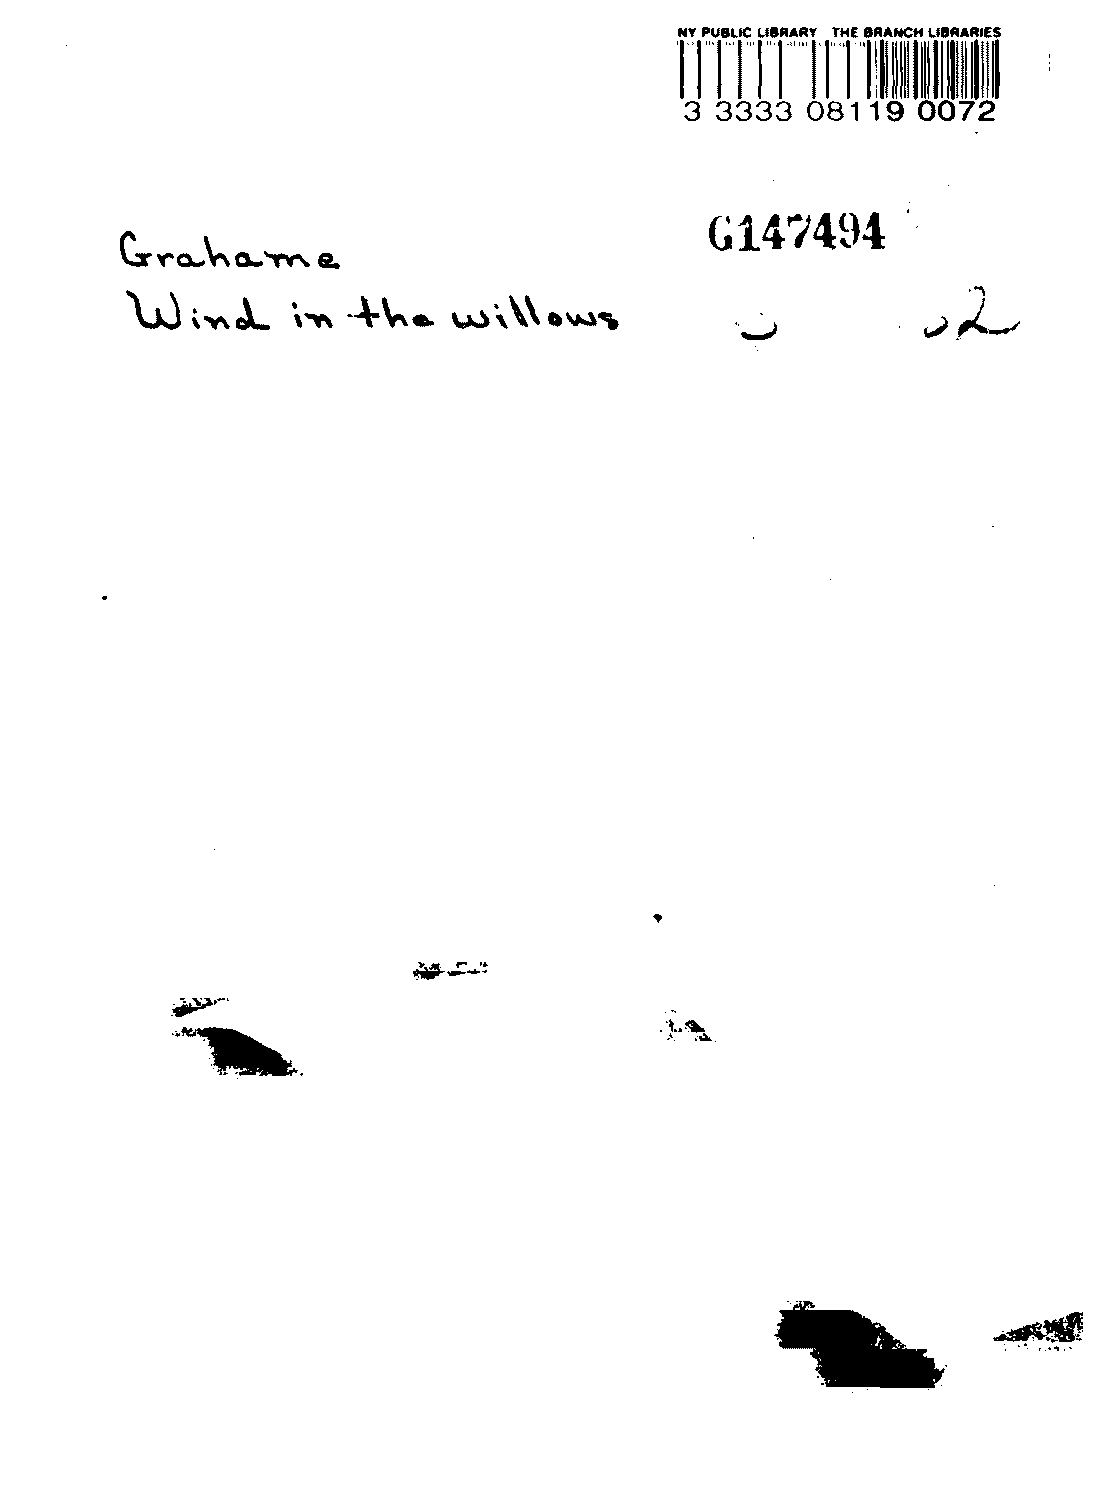 NY PUBLIC LIBRARY THE BRANCH LIBRARIES
3 3333 08119 0072
G147494
Grahame
Wind in the willows